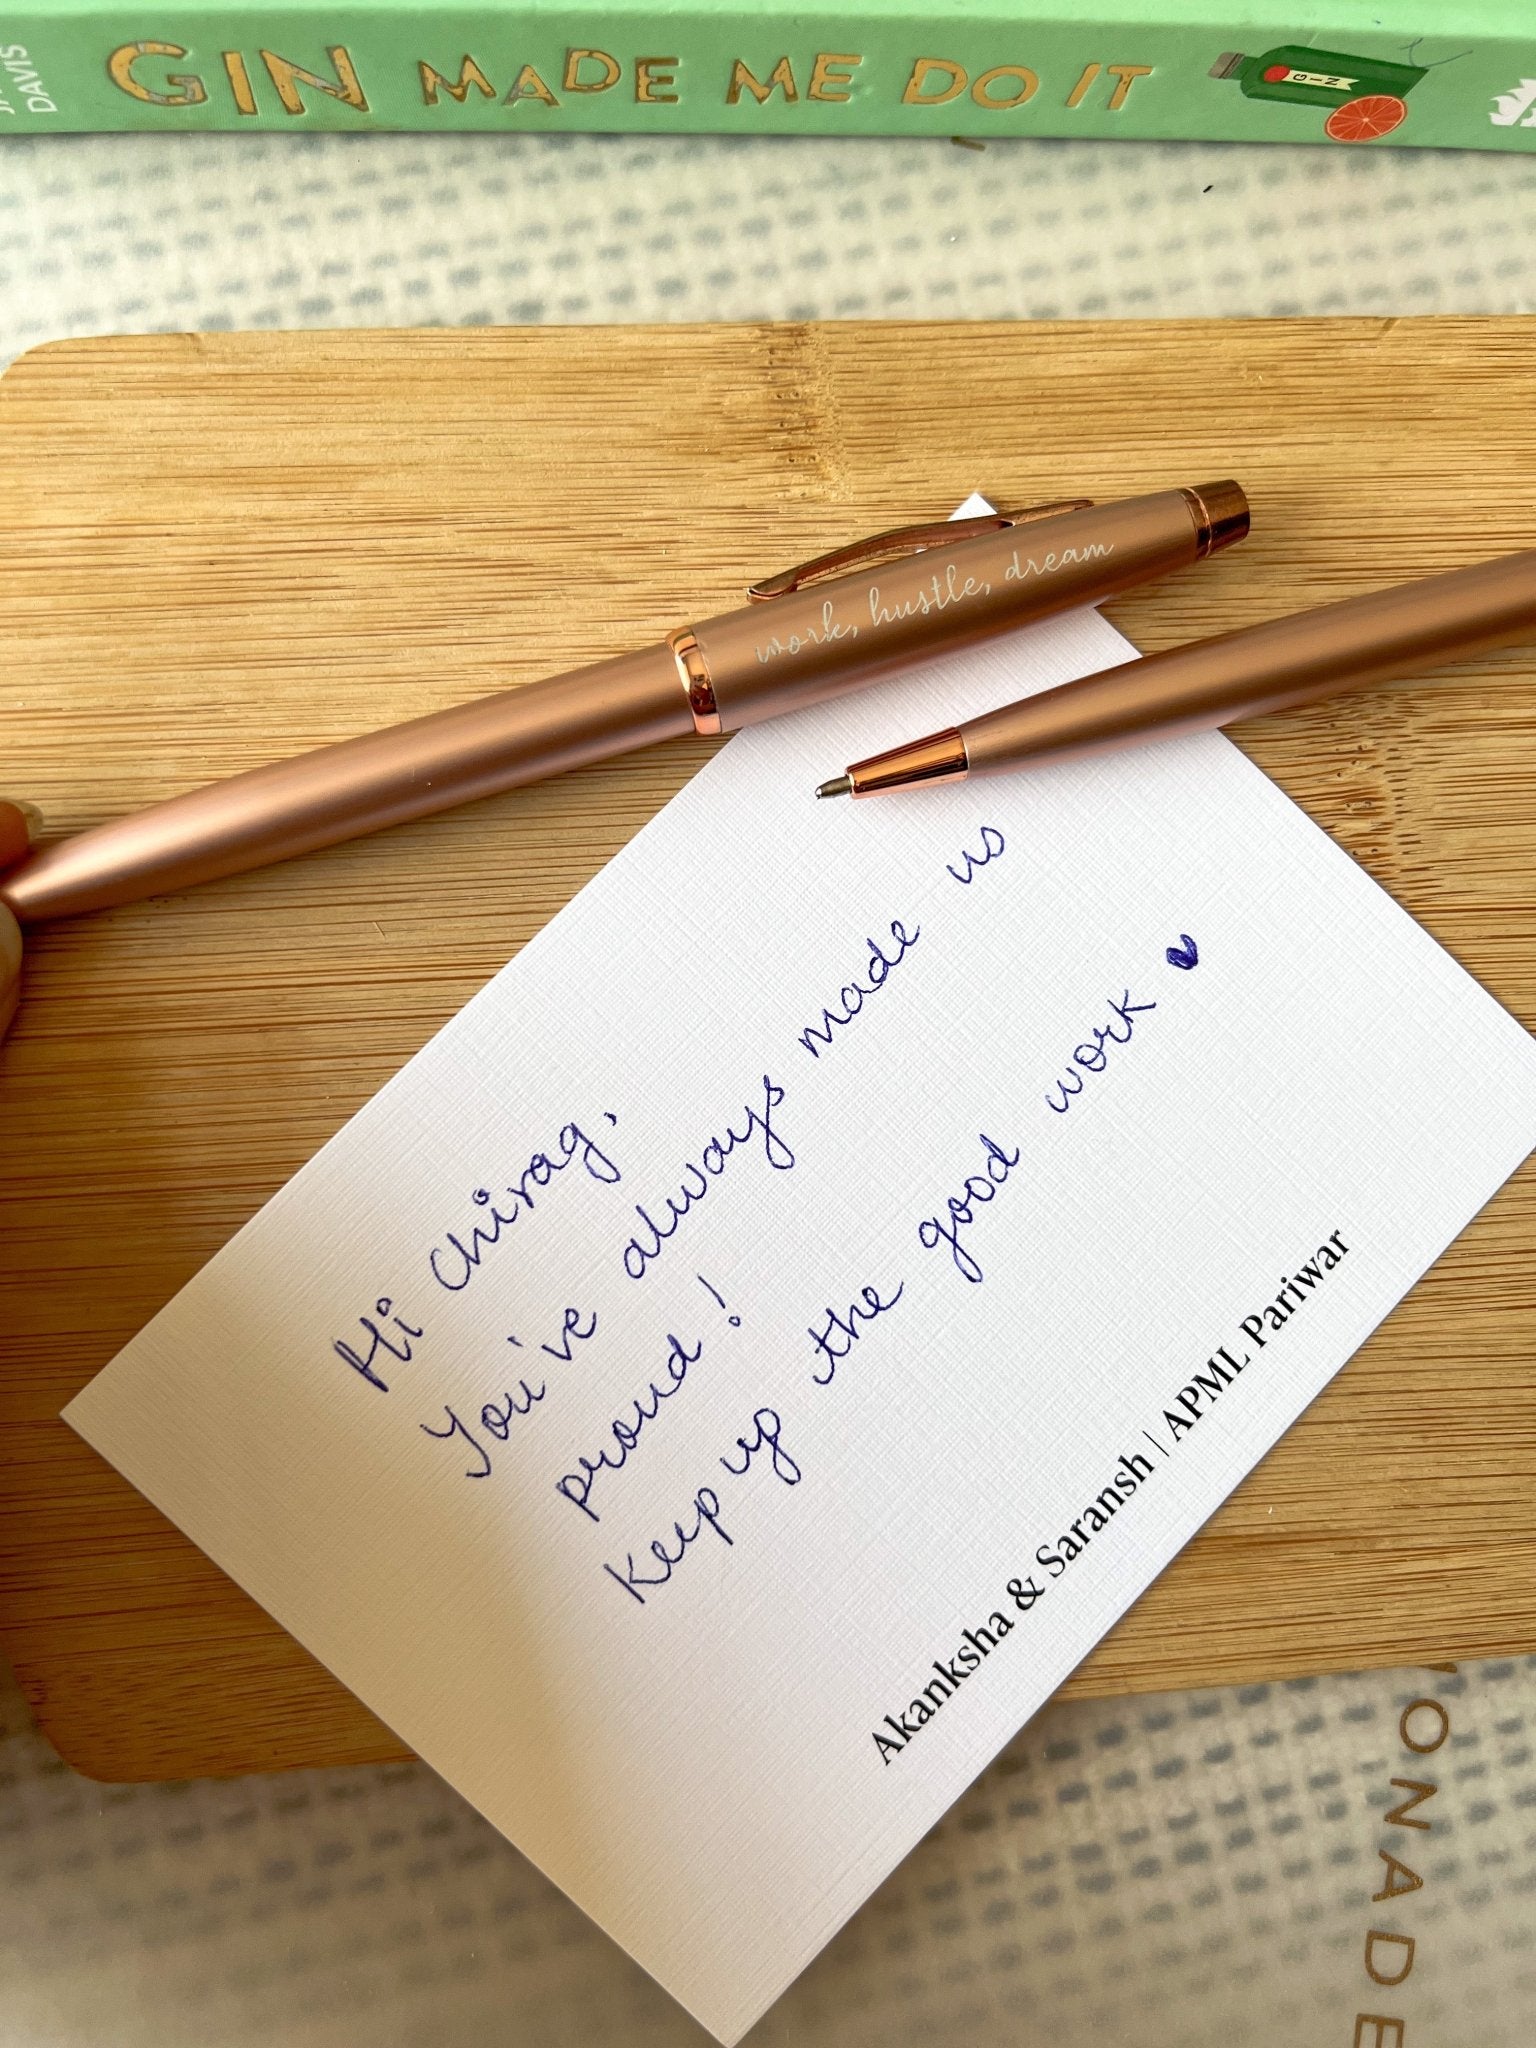 DAVIS
GIN MADE ME DO IT
GIN
work, hustle, dream
Hi Chirag,
You've always made us
proud!
Keep up the good work
Akanksha & Saransh | APML Pariwar